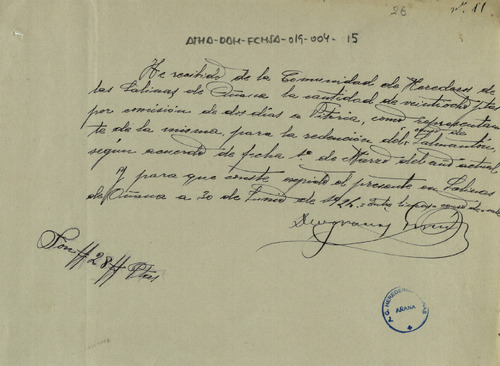 26
nº. 11
ATHA-DAH-FCHSA-019-004-15
He recibido de la Comunidad de Herederos de
las Salinas de Añana la cantidad de veintiocho ptas
por comisión de dos días a Vitoria, como representan-
te de la misma, para la redención del Salmantón,
según acuerdo de fecha 1º de Marzo del año actual
Y para que conste expido el presente en Salinas
de Añana a 20 de Junio de 1924.
Deogracias
Son # 28 # Ptas
AÑANA